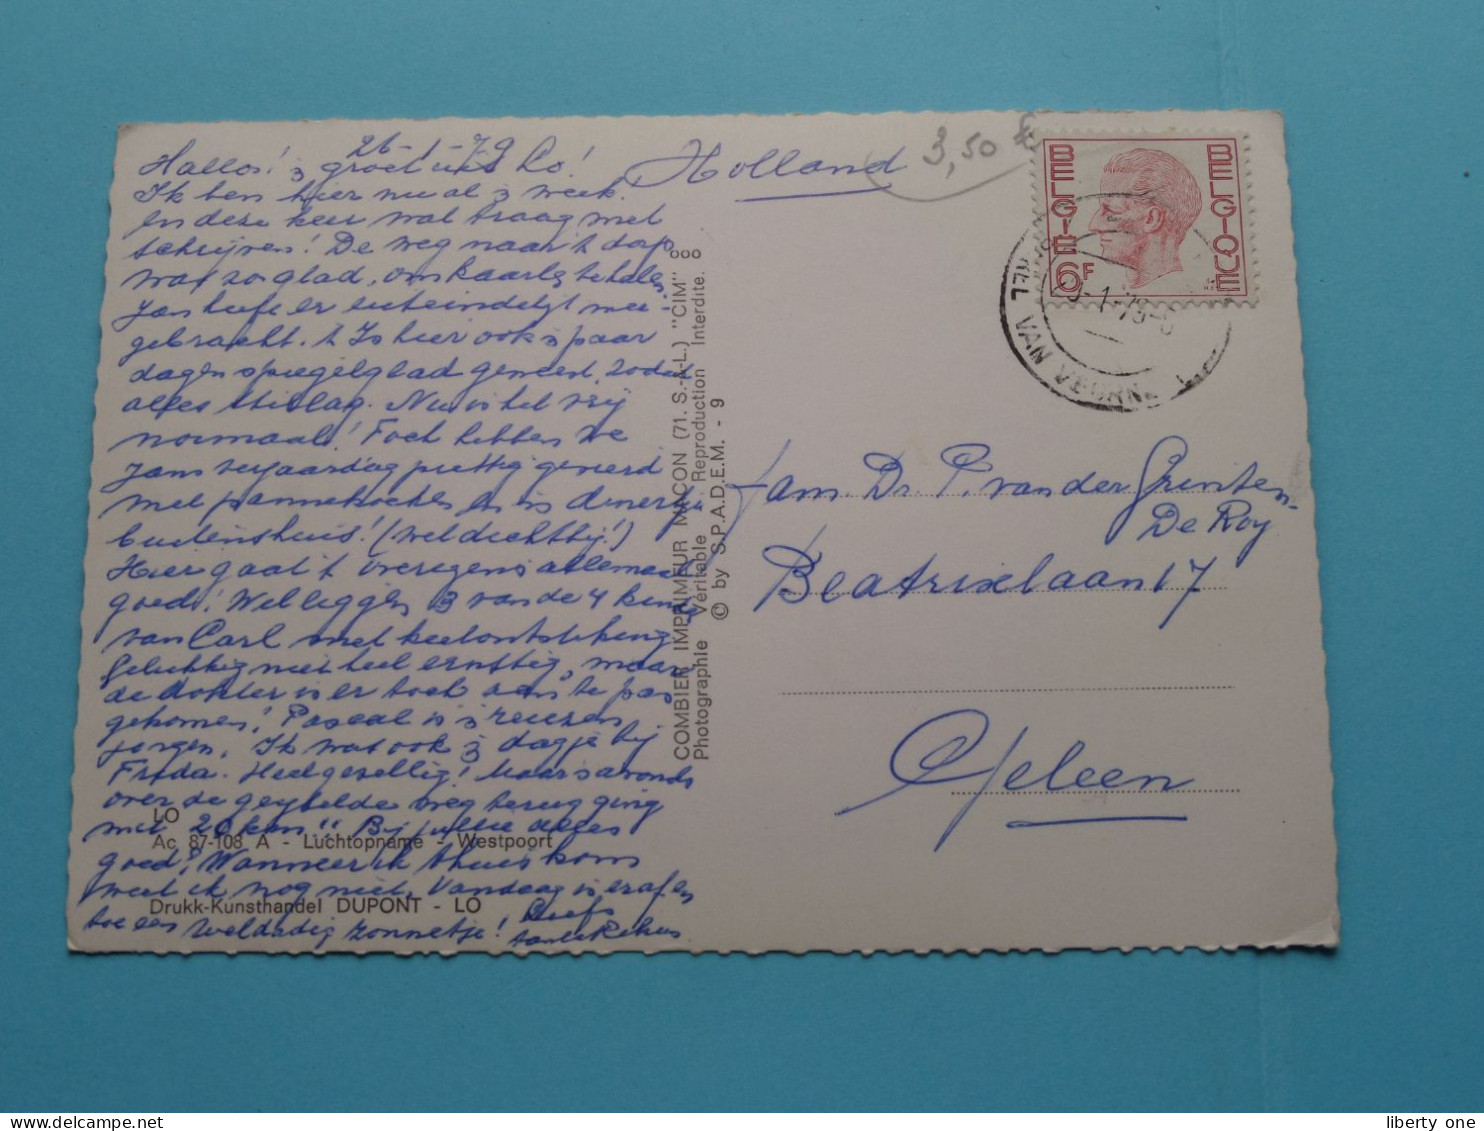 26-1-79
Hallo! 'n groet uit Lo!
Ik ben hier nu al 'n week.
En deze keer wat traag met
schrijven! De weg naar 't dorp
was zo glad, om kaarten te halen
Jan heeft er uiteindelijk mee-
gebracht. 't Is hier ook 'n paar
dagen spiegelglad geweest, zodat
alles stillag. Nu is het vrij
normaal! Toch hebben we
Jans verjaardag prettig gevierd
met pannekoeken en 'n dinertje
buitenshuis! (wel dichtbij!)
Hier gaat 't overigens allemaal
goed! Wel liggen 3 van de 4 kinds
van Carl met keelontsteking
Gelukkig niet heel ernstig, maar
de dokter is er toch aan te pas
gekomen! Pascal is 'n reuzen
jongen. Ik was ook 'n dagje bij
Frida. Heel gezellig! Maar 's avonds
over de geijzelde weg terugging
met 20 km"! Bij jullie alles
goed? Wanneer ik thuis kom
weet ik nog niet. Vandaag is er af en
toe een weldadig zonnetje! Liefs
LO
Ac 87-108 A - Luchtopname - Westpoort
Drukk-Kunsthandel DUPONT - LO
COMBIER IMPRIMEUR MACON (71. S.-A-L.) "CIM"
Photographie Véritable Reproduction Interdite.
© by S.P.A.D.E.M. - 9
Holland
3,50 €
BELGIE BELGIQUE
6F
VAN VEURNE
Fam. Dr. P. van der Grinten-
De Roy
Beatrixlaan 17
Geleen
liberty one